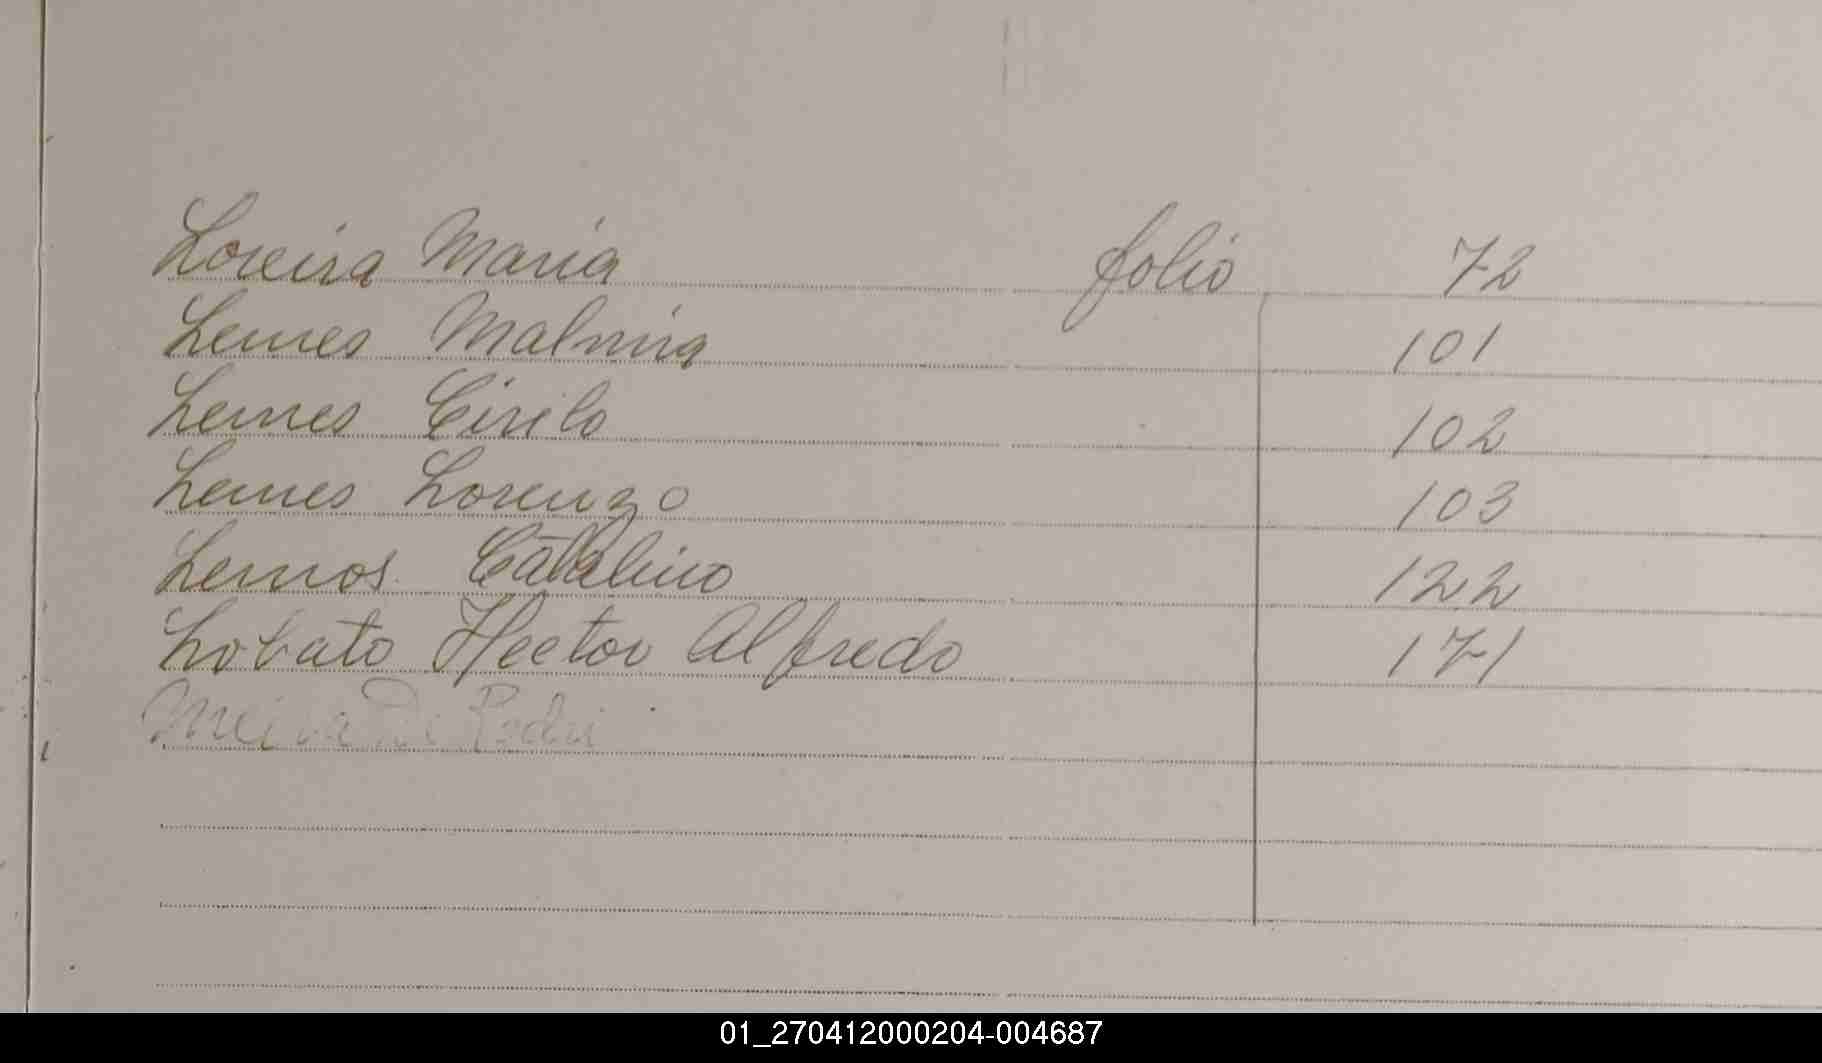 Loreira Maria folio 72
Lemes Malvina 101
Lemes Cirilo 102
Lemes Lorenzo 103
Lemos Catalino 122
Lobato Hector Alfredo 171
01_270412000204-004687